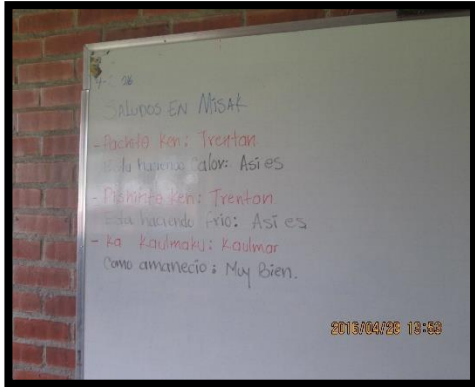 SALUDOS EN MISAK
- Pachito Ken: Trentan
Esta haciendo Calor: Asi es
- Pishinto Ken: Trentan
Esta haciendo frio: Asi es
- Ka Kaulmaku: Kaulmar
Como amanecio: Muy Bien.
2015/04/28 13:53